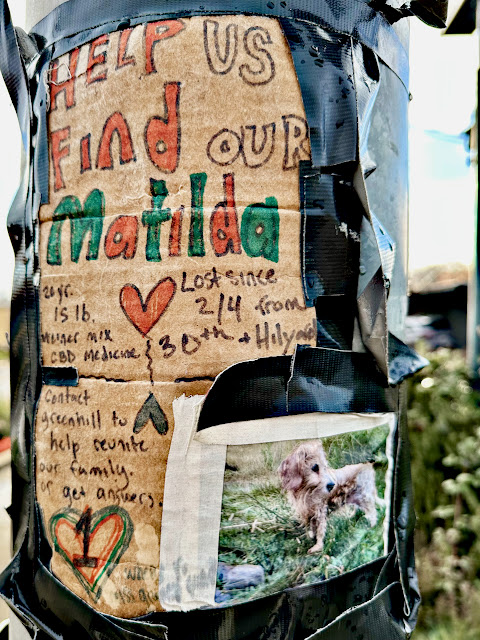 HELP US
Find OUR
Matilda
20 yr.
15 lb.
mix
CBD Medicine
Lost since
2/4 from
30th + Hilyard
Contact
greenhill to
help reunite
our family.
or get answers.